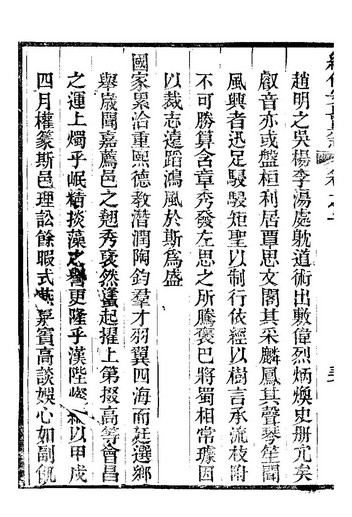 趙明之吳楊李湯處躭道術出敷偉烈炳煥史册亢矣
叡音亦或盤桓利居覃思文閣其采麟鳳其聲琴笙聞
風興者迅足駸駸矩聖以制行依經以樹言承流枝附
不可勝算含章秀發左思之所騰褒巴將蜀相常璩因
以裁志遠蹈鴻風於斯為盛
國家累洽重熙德教潛潤陶鈞羣才羽翼四海而廷選鄉
舉歲聞嘉薦邑之翹秀夋然蠭起擢上第掇高等會昌
之運上燭乎岷精掞藻之譽更隆乎漢陛 以甲戌
四月權篆斯邑理訟餘暇式 嘉賓高談娛心如副飢